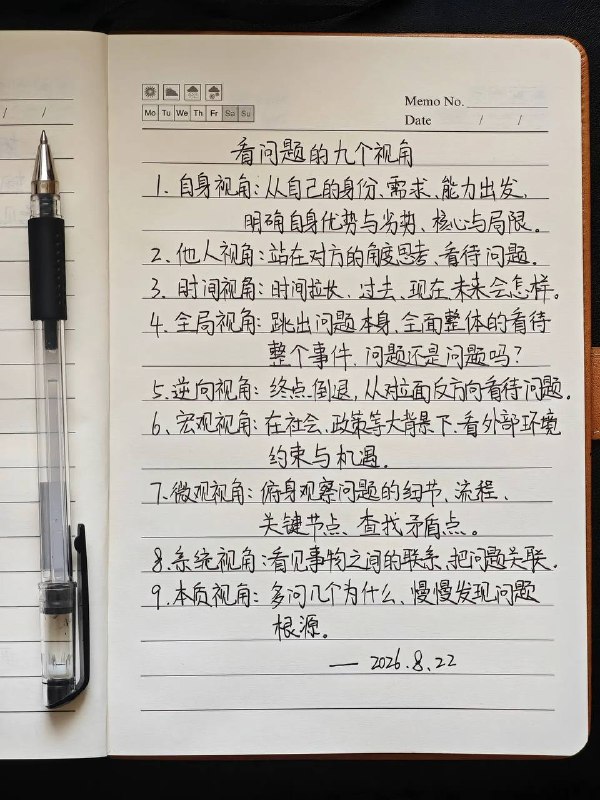 Memo No.
Mo Tu We Th Fr Sa Su
Date / /
看问题的九个视角
1. 自身视角：从自己的身份、需求、能力出发，
明确自身优势与劣势、核心与局限。
2、他人视角：站在对方的角度思考、看待问题。
3、时间视角：时间拉长、过去、现在、未来会怎样。
4、全局视角：跳出问题本身、全面整体的看待
整个事件、问题还是问题吗？
5、逆向视角：终点倒退，从对立面反方向看待问题。
6、宏观视角：在社会、政策等大背景下、看外部环境
约束与机遇．
7、微观视角：俯身观察问题的细节、流程、
关键节点、查找矛盾点。
8、系统视角：看见事物之间的联系、把问题关联．
9、本质视角：多问几个为什么、慢慢发现问题
根源。
— 2026.8.22